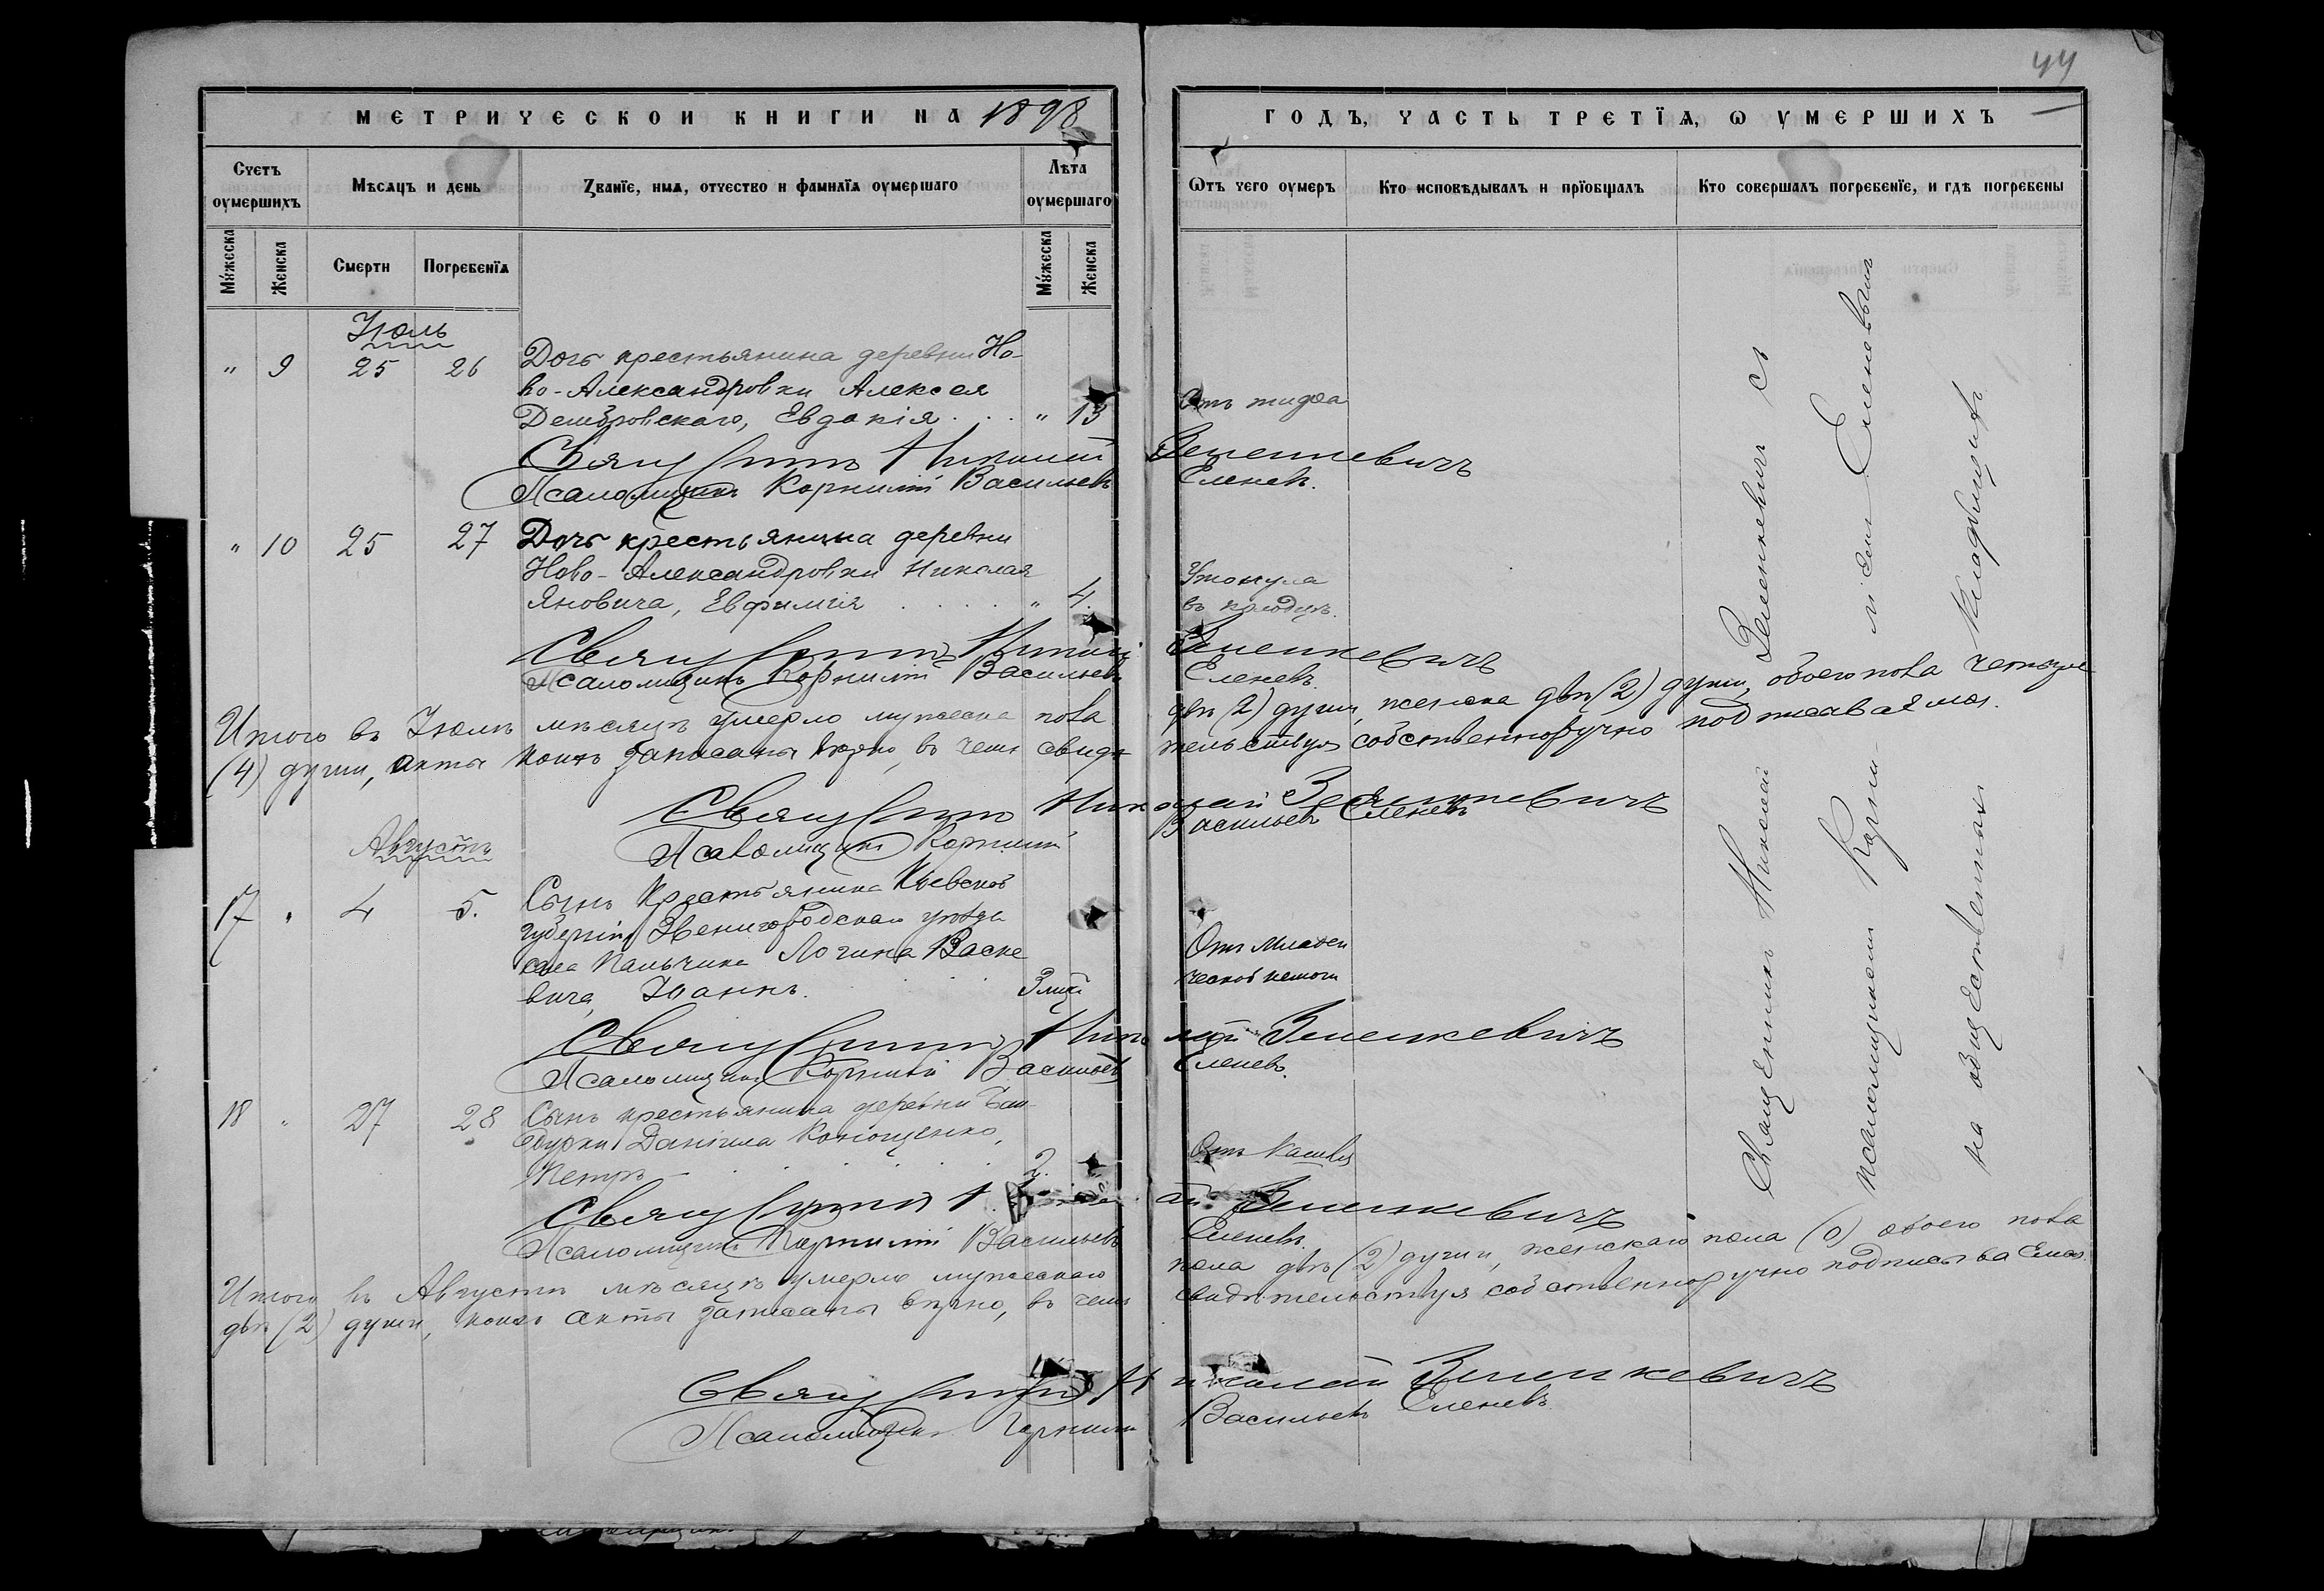 44
МЕТРИЧЕСКОЙ КНИГИ НА 1898
ГОДЪ, ЧАСТЬ ТРЕТІЯ, Ѡ УМЕРШИХЪ
Счетъ оумершихъ
Мѣсяцъ и день
Званіе, имя, отчество и фамилія оумершаго
Лѣта оумершаго
Отъ чего оумеръ
Кто исповѣдывалъ и пріобщалъ
Кто совершалъ погребеніе, и гдѣ погребены
Мужеска
Женска
Смерти
Погребенія
Мужеска
Женска
Іюль
" 9 25 26 Дочь крестьянина деревни Но-
во-Александровки Алексея
Евдокія " 13 Отъ тифа
Священникъ Николай Зеленкевичъ
Псаломщикъ Корнилій Васильевъ Еленевъ.
" 10 25 27 Дочь крестьянина деревни
Ново-Александровки Николая
Яновича, Евфимія " 4. Утонула
въ колодцѣ.
Священникъ Николай Зеленкевичъ
Псаломщикъ Корнилій Васильевъ Еленевъ.
Итого въ Іюлѣ мѣсяцѣ умерло мужеска пола двѣ (2) души, женска двѣ (2) души, обоего пола четыре
(4) души, акты коихъ записаны вѣрно, въ чемъ свидѣтельствуя собственноручно подписываемся.
Священникъ Николай Зеленкевичъ
Псаломщикъ Корнилій Васильевъ Еленевъ
Августъ
17 " 4 5. Сынъ Крестьянина Кіевской
губерніи Звенигородскаго уѣзда
села Пальчика Логина Васке
вича, Іоаннъ. 3 мѣц. Отъ младен
ческой немощи
Священникъ Николай Зеленкевичъ
Псаломщикъ Корнилій Васильевъ Еленевъ.
18 " 27 28 Сынъ крестьянина деревни
Даніила Конощенко,
Петръ 2. Отъ кашля
Священникъ Николай Зеленкевичъ
Псаломщикъ Корнилій Васильевъ Еленевъ.
Итого въ Августѣ мѣсяцѣ умерло мужескаго пола двѣ (2) души, женскаго пола (0) обоего пола
двѣ (2) души, коихъ акты записаны вѣрно, въ чемъ свидѣтельствуя собственноручно подписываемся.
Священникъ Николай Зеленкевичъ
Псаломщикъ Корнилій Васильевъ Еленевъ
Священникъ Николай Зеленкевичъ съ
псаломщикомъ Корниліемъ Еленевымъ
на общественномъ кладбищѣ